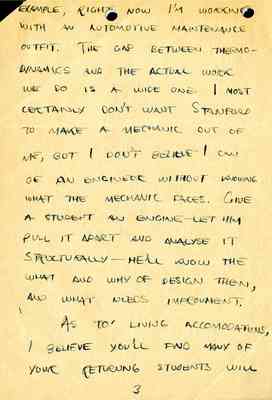 EXAMPLE, RIGHT NOW I'M WORKING
WITH AN AUTOMOTIVE MAINTENANCE
OUTFIT. THE GAP BETWEEN THERMO-
DYNAMICS AND THE ACTUAL WORK
WE DO IS A WIDE ONE. I MOST
CERTAINLY DON'T WANT STANFORD
TO MAKE A MECHANIC OUT OF
ME, BUT I DON'T BELIEVE I CAN
BE AN ENGINEER WITHOUT KNOWING
WHAT THE MECHANIC FACES. GIVE
A STUDENT AN ENGINE—LET HIM
PULL IT APART AND ANALYSE IT
STRUCTURALLY—HE'LL KNOW THE
WHAT AND WHY OF DESIGN THEN,
AND WHAT NEEDS IMPROVMENT.
AS TO LIVING ACCOMODATIONS,
I BELIEVE YOU'LL FIND MANY OF
YOUR RETURNING STUDENTS WILL
3